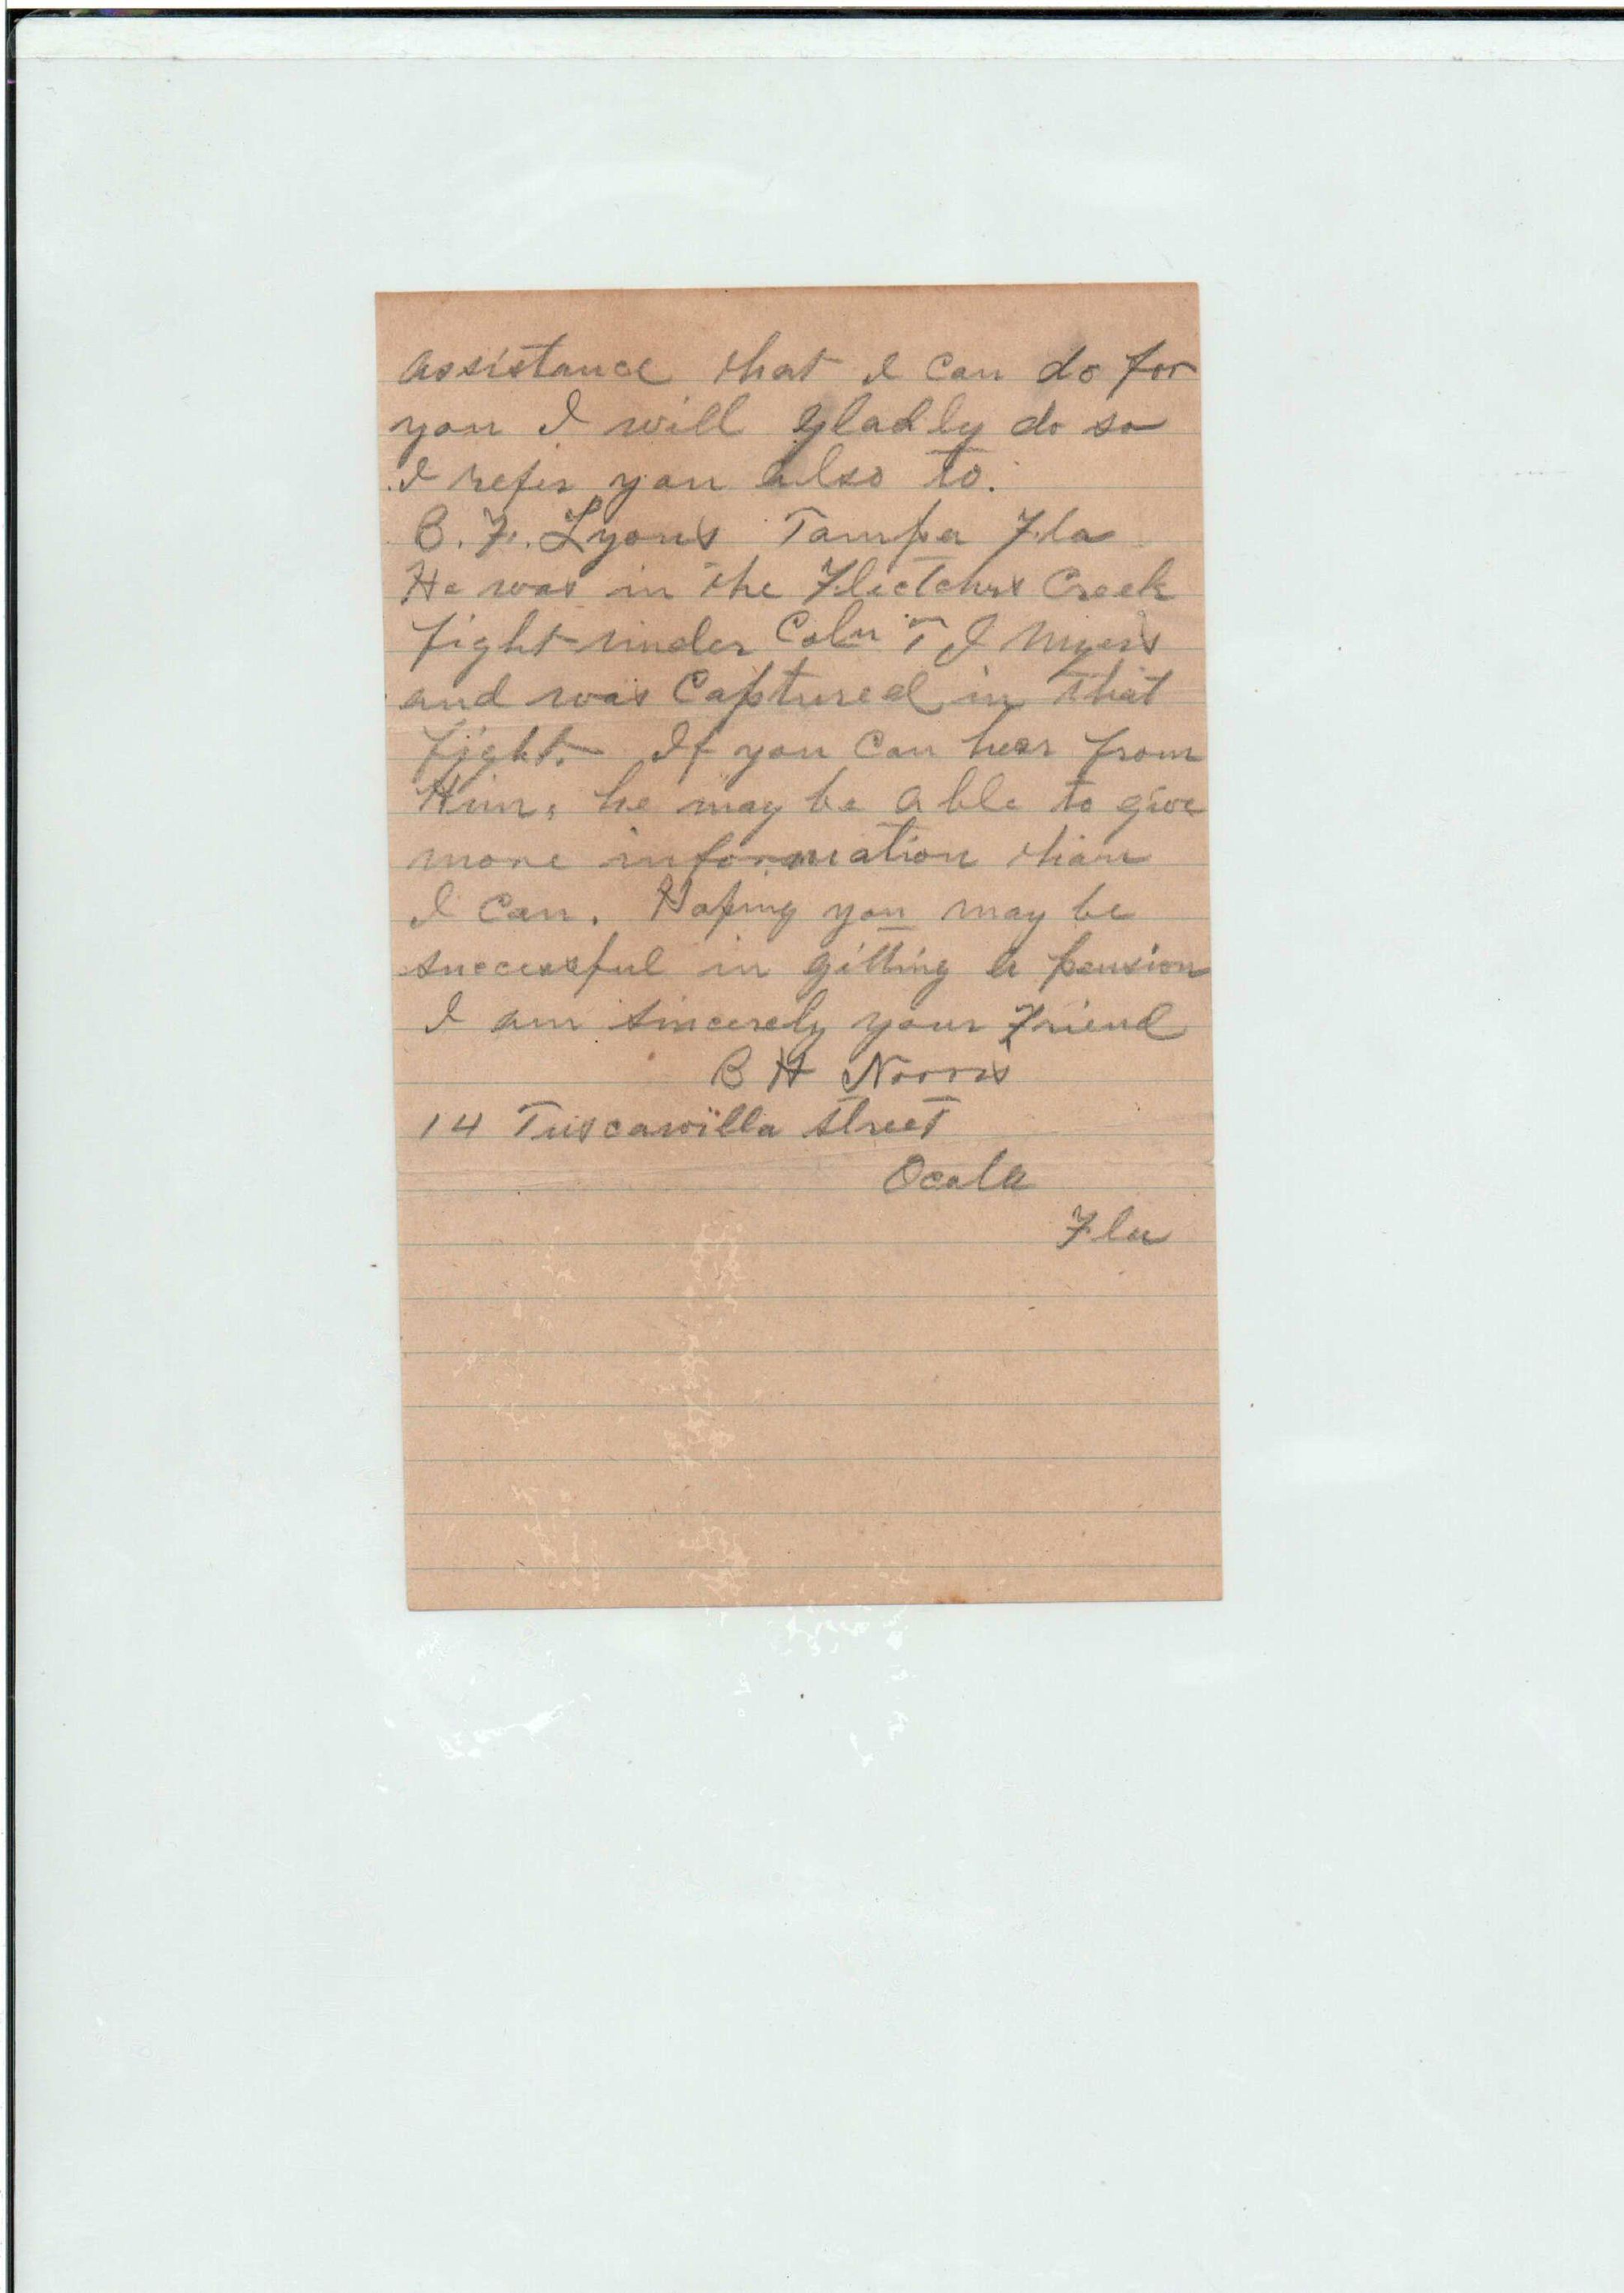 assistance that I can do for
you I will gladly do so
I refer you also to.
B. F. Lyons Tampa Fla
He was in the Fletchers Creek
fight under Coln T J Myers
and was Captured in that
fight. If you can hear from
Him, he may be able to give
more information than
I can. Hoping you may be
successful in gitting a pension
I am sincerely your Friend
B H Norris
14 Tuscawilla street
Ocala
Fla